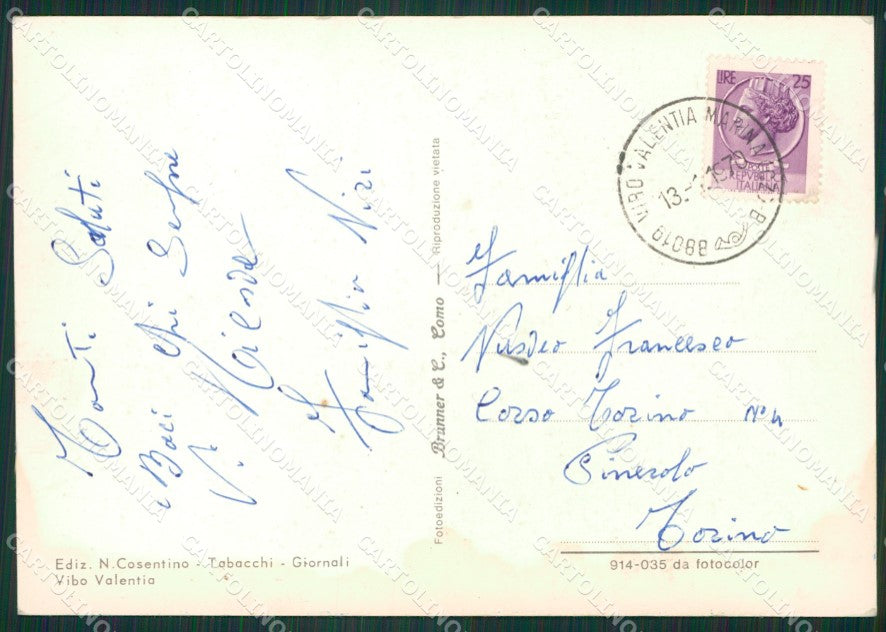 LIRE 25
REPVBBLICA
ITALIANA
VIBO VALENTIA MARINA
88019
13.-1.1970
Tanti Saluti
e Baci chi Sempre
Vi Ricorda
Famiglia Nisi
Fotoedizioni Brunner & C., Como — Riproduzione vietata
Famiglia
Nusdeo Francesco
Corso Torino N° 4
Pinerolo
Torino
Ediz. N. Cosentino - Tabacchi - Giornali
Vibo Valentia
914-035 da fotocolor
CARTOLINOMANIA